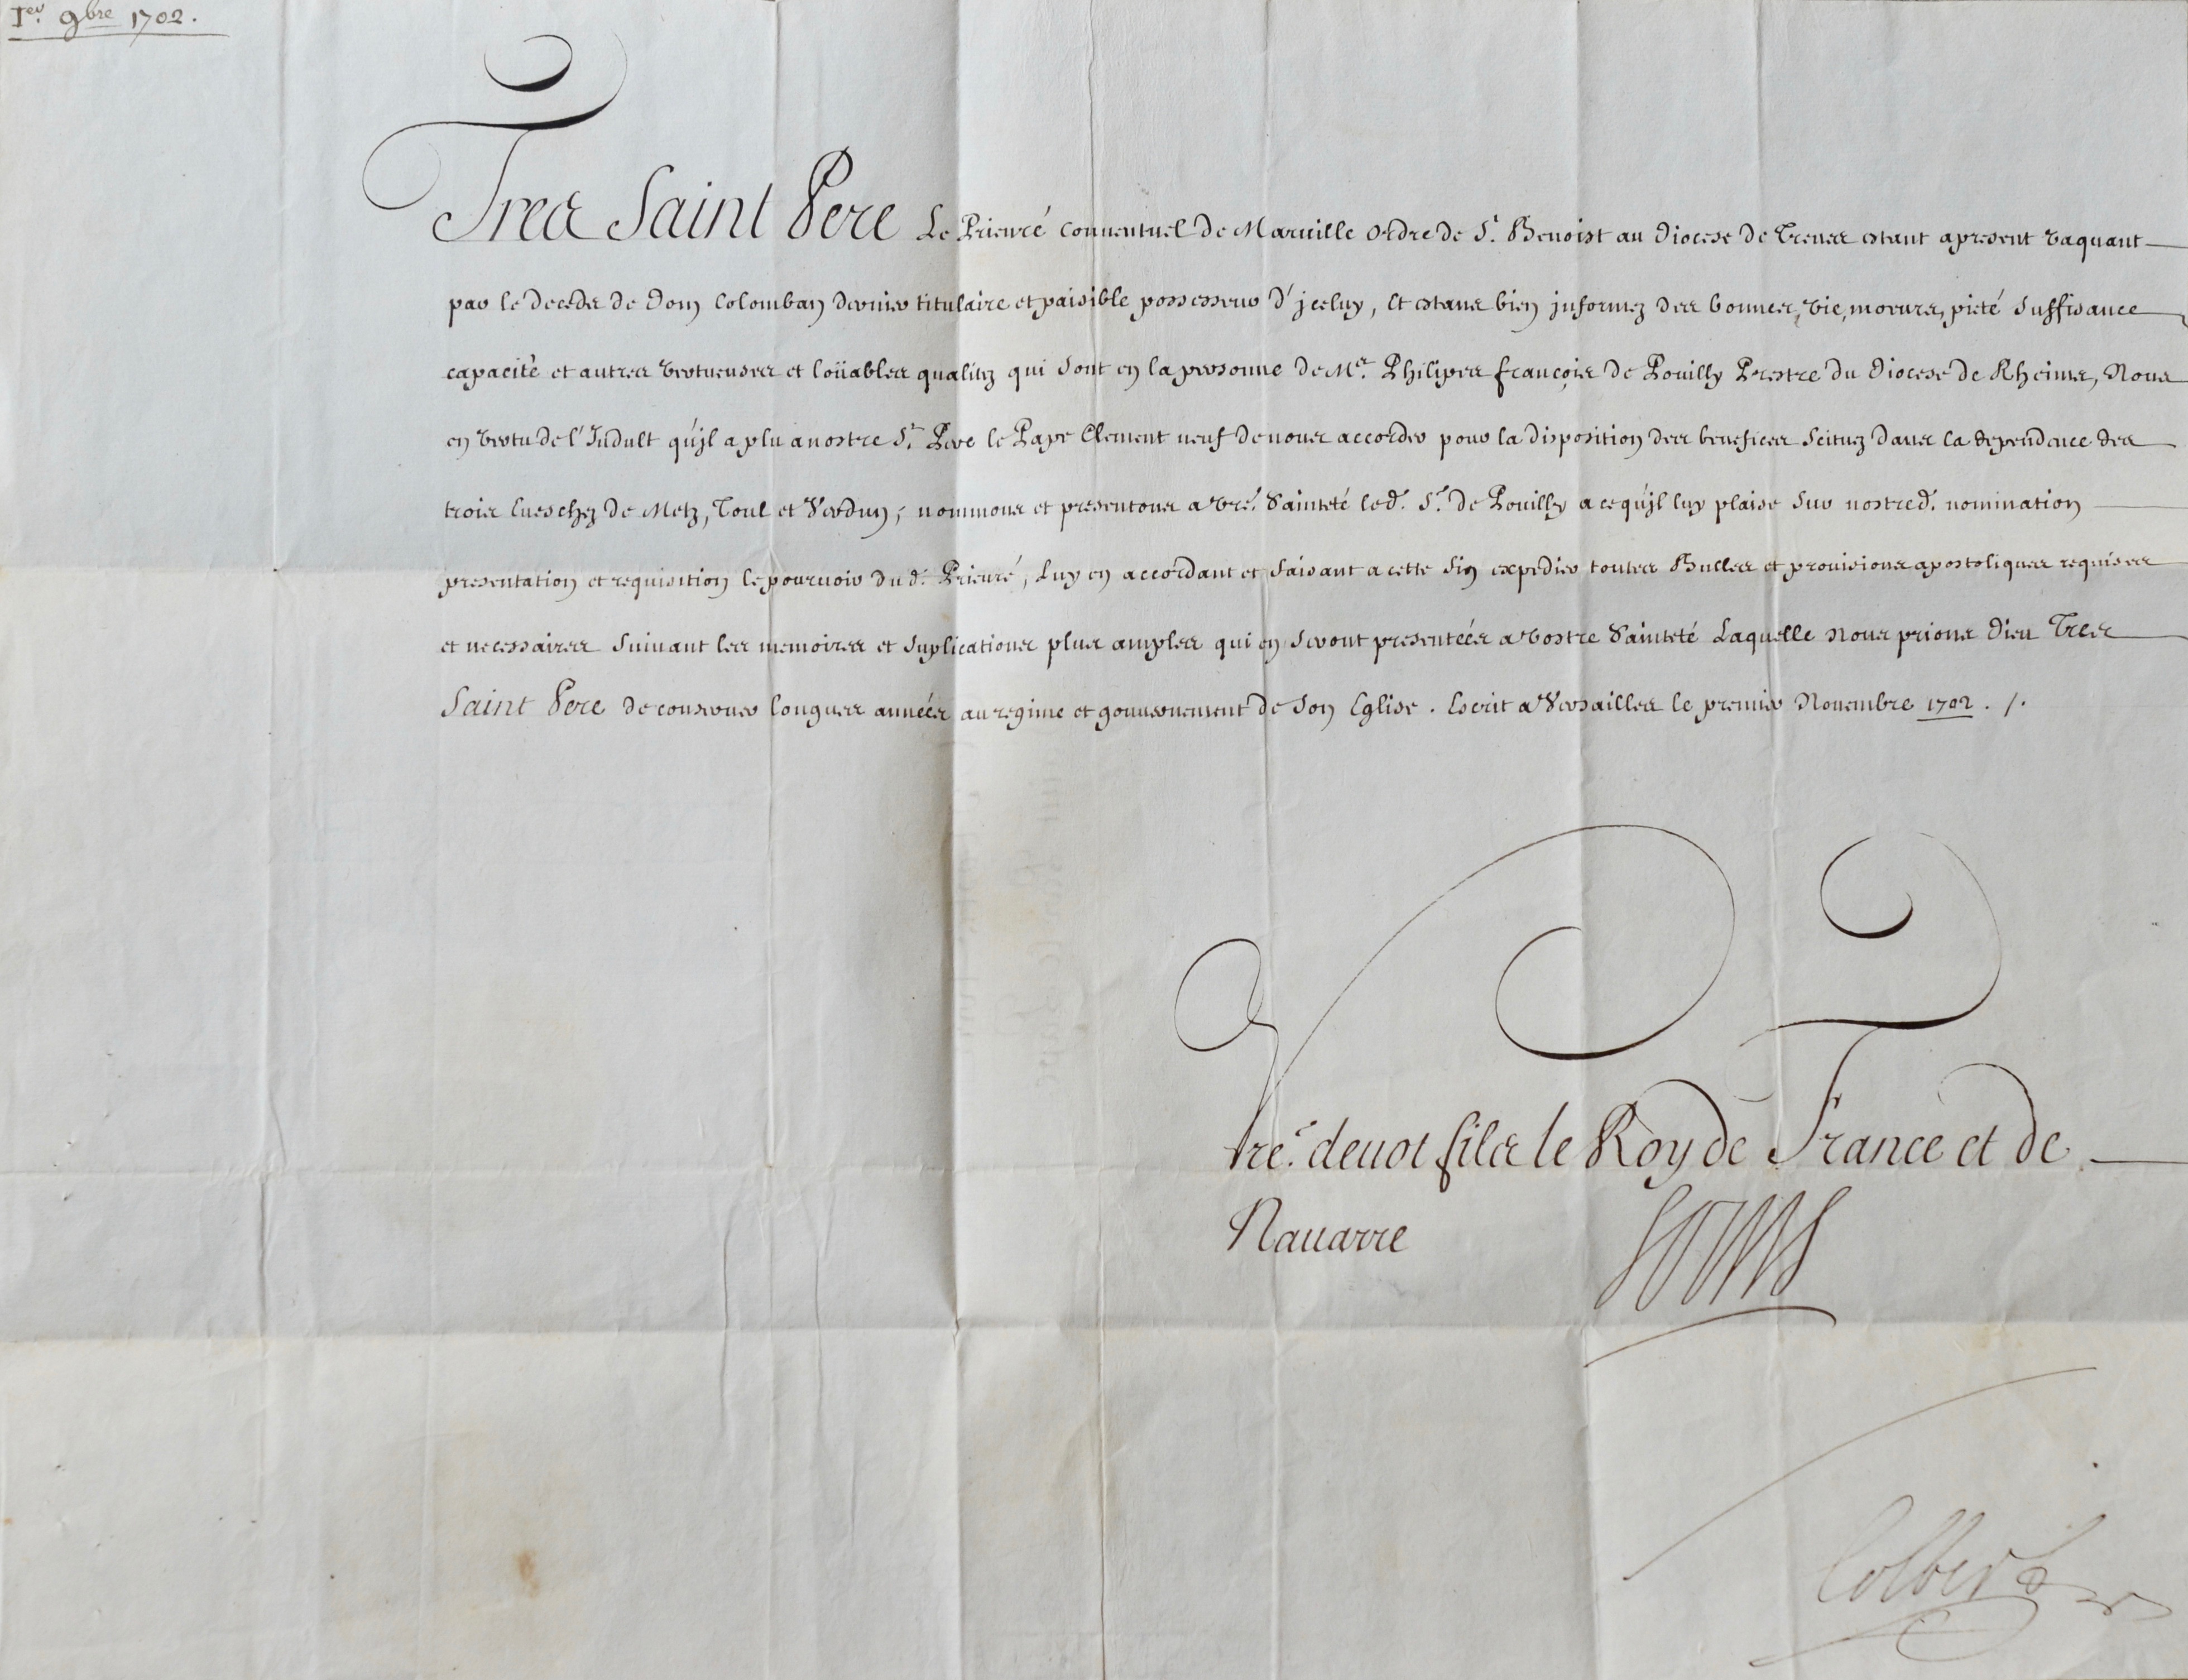 1er 9bre 1702.
Tres Saint Pere Le Prieuré conuentuel de Maruille ordre de St. Benoist au Diocese de Treues estant apresent vaquant
par le deceds de Dom Colomban dernier titulaire et paisible possesseur d'jceluy, Et estans bien jnformez des bonnes, vie, moeurs, pieté suffisance
capacité et autres vertueuses et loüables qualitez qui sont en la personne de Me. Philipes françois de Pouilly Prestre du Diocese de Rheims, Nous
en vertu de l'Indult qu'jl a plu a nostre St. Pere le Pape Clement neuf de nous accorder pour la disposition des benefices scituez dans la dependance des
trois Eueschez de Metz, Toul et Verdun; nommons et presentons a vre. Sainteté led. Sr. de Pouilly a ce qu'jl luy plaise sur nostred. nomination
presentation et requisition le pouruoir dud. Prieuré, Luy en accordant et faisant a cette fin expedier toutes Bulles et prouisions apostoliques requises
et necessaires suiuant les memoires et suplications plus amples qui en seront presentées a vostre Sainteté Laquelle Nous prions Dieu Tres
Saint Pere de conseruer longues années au regime et gouuernement de son Eglise. Escrit a Versailles le premier Nouembre 1702. /.
Vre. deuot fils le Roy de France et de
Nauarre
Louis
Colbert